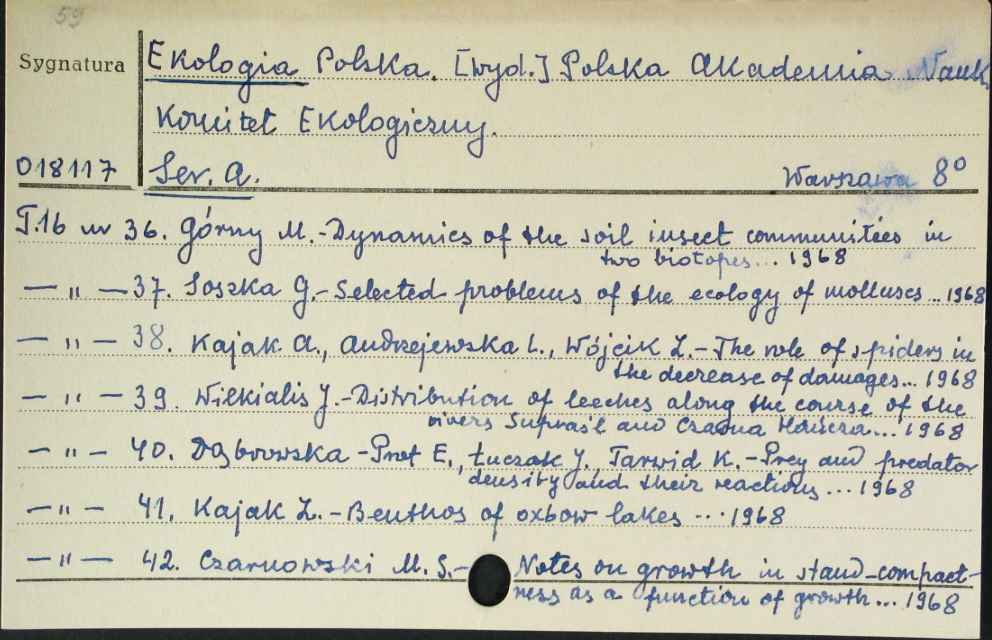 59
Sygnatura
Ekologia Polska. [wyd.] Polska Akademia Nauk.
Komitet Ekologiczny.
018117 Ser. A. Warszawa 8°
T.16 nr 36. Górny M.-Dynamics of the soil insect communities in
two biotopes... 1968
— " — 37. Soszka G.-Selected problems of the ecology of molluscs...1968
— " — 38. Kajak A., Andrzejewska L., Wójcik Z.-The role of spiders in
the decrease of damages... 1968
— " — 39. Wilkialis J.-Distribution of leeches along the course of the
rivers Supraśl and Czarna Hańcza... 1968
— " — 40. Dąbrowska-Prot E., Łuczak J., Tarwid K.-Prey and predator
density and their reactions ... 1968
— " — 41. Kajak Z.-Benthos of oxbow lakes ... 1968
— " — 42. Czarnowski M. S.- Notes on growth in stand-compact-
ness as a function of growth... 1968